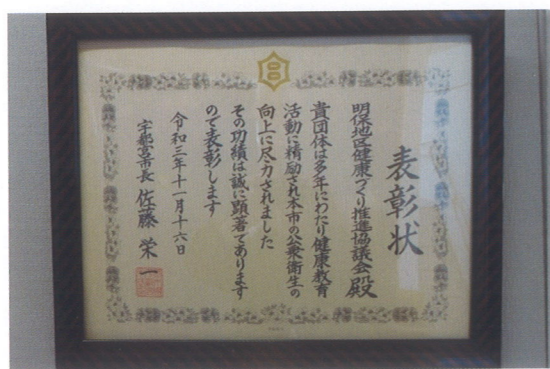 表彰状
明保地区健康づくり推進協議会殿
貴団体は多年にわたり健康教育
活動に精励され本市の公衆衛生の
向上に尽力されました
その功績は誠に顕著であります
ので表彰します
令和三年十一月十六日
宇都宮市長 佐藤栄一